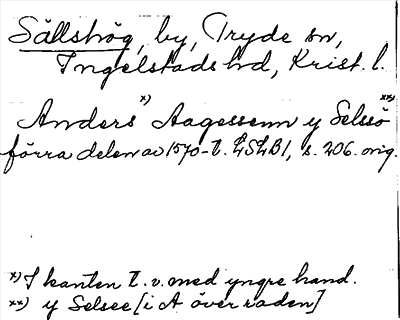 Sällshög, by, Tryde sn,
Ingelstads hd, Krist. l.
Anders x) Aagessenn y Selssö xx)
förra delen av 1570-t. LSLB1, s. 206. orig.
x) I kanten t. v. med yngre hand.
xx) y Selsee [i A över raden]